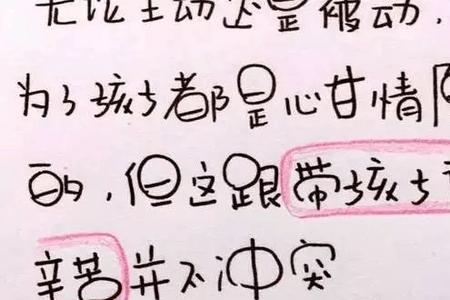 无论主动还是被动,
为了孩子都是心甘情
的,但这跟带孩子
辛苦并不冲突